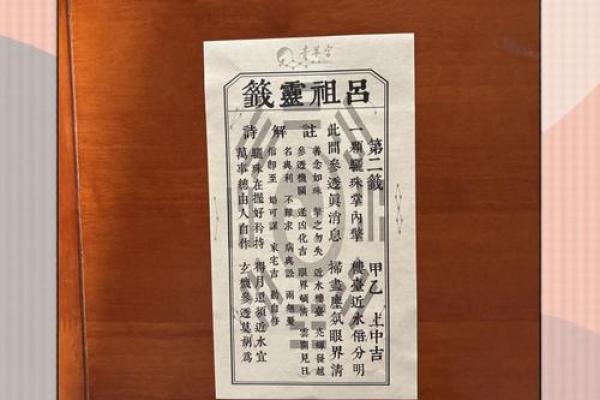 呂祖靈籤
第二籤 甲乙 上中吉
一顆驪珠掌內擎 樓臺近水倍分明
此間參透眞消息 掃盡塵氛眼界清
註解詩
善念如珠 擎之勿失 近水樓臺 光輝發越
參透機關 逢凶化吉 眼界頓清 雲開見日
名與利 不難求 病與訟 兩無憂
信即至 婚可謀 家宅吉 勸自修
驪珠在握好矜持 得月還須近水宜
萬事總由人自作 玄機參透莫胡爲